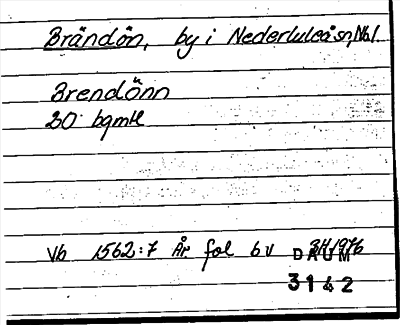 Brändön, by i Nederluleå sn, Nbl.
Brendönn
30 bgmtl
Vb 1562:7 År fol 6v DAUM
3142